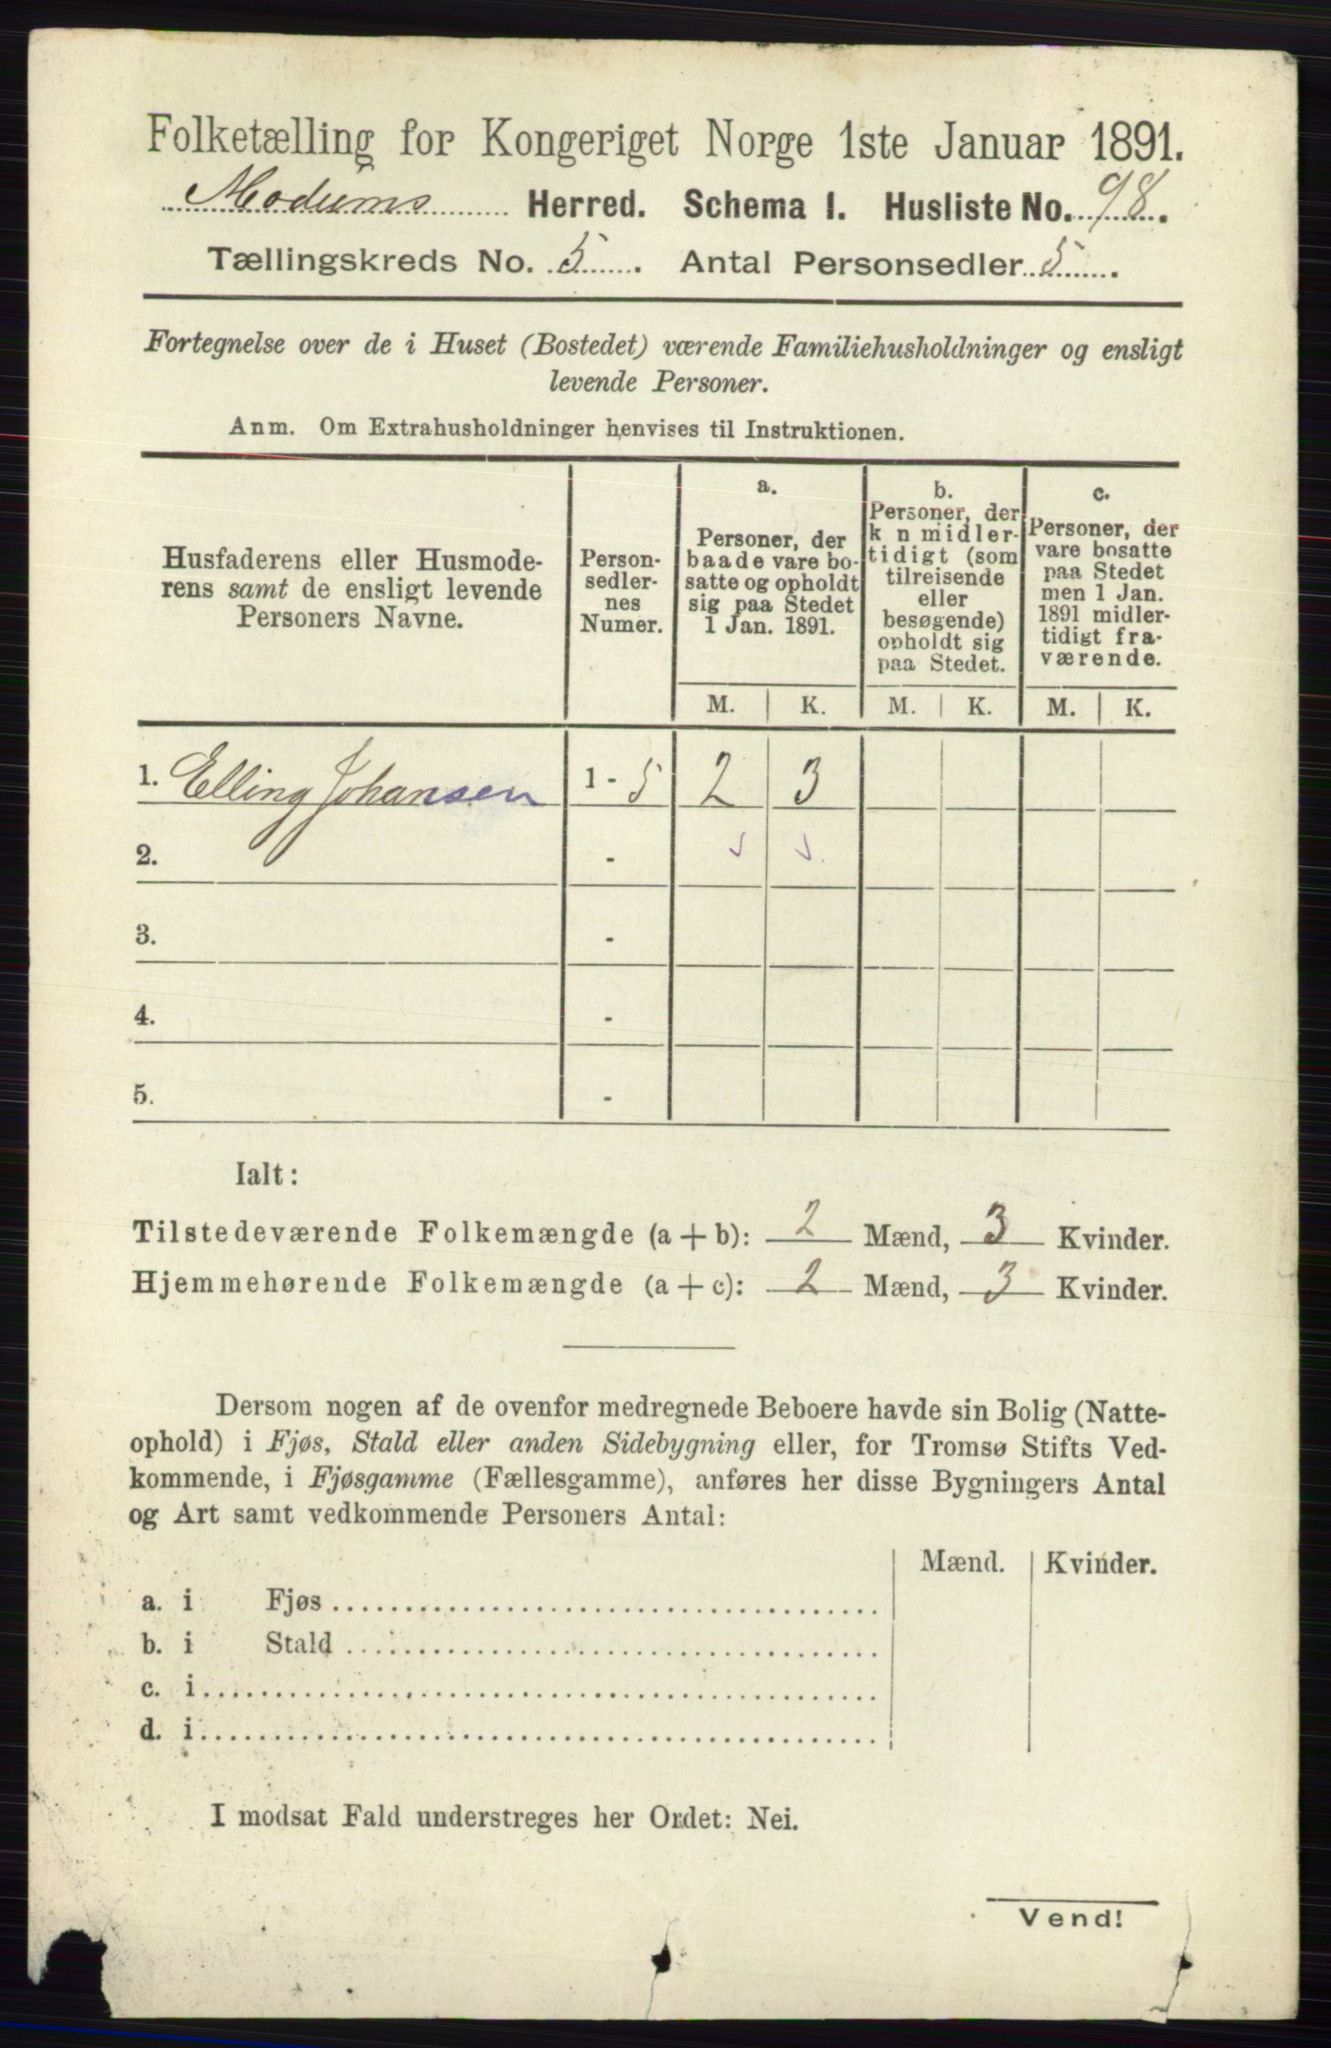 Folketælling for Kongeriget Norge 1ste Januar 1891.
Modums Herred. Schema I. Husliste No. 98.
Tællingskreds No. 5. Antal Personsedler 5.
Fortegnelse over de i Huset (Bostedet) værende Familiehusholdninger og ensligt
levende Personer.
Anm. Om Extrahusholdninger henvises til Instruktionen.
Husfaderens eller Husmode-
rens samt de ensligt levende
Personers Navne.
Person-
sedler-
nes
Numer.
a.
Personer, der
baade vare bo-
satte og opholdt
sig paa Stedet
1 Jan. 1891.
b.
Personer, der
k n midler-
tidigt (som
tilreisende
eller
besøgende)
opholdt sig
paa Stedet.
c.
Personer, der
vare bosatte
paa Stedet
men 1 Jan.
1891 midler-
tidigt fra-
værende.
M. K. M. K. M. K.
1. Elling Johansen 1 - 5 2 3
2. -
3. -
4. -
5. -
Ialt:
Tilstedeværende Folkemængde (a + b): 2 Mænd, 3 Kvinder.
Hjemmehørende Folkemængde (a + c): 2 Mænd, 3 Kvinder.
Dersom nogen af de ovenfor medregnede Beboere havde sin Bolig (Natte-
ophold) i Fjøs, Stald eller anden Sidebygning eller, for Tromsø Stifts Ved-
kommende, i Fjøsgamme (Fællesgamme), anføres her disse Bygningers Antal
og Art samt vedkommende Personers Antal:
Mænd. Kvinder.
a. i Fjøs
b. i Stald
c. i
d. i
I modsat Fald understreges her Ordet: Nei.
Vend!